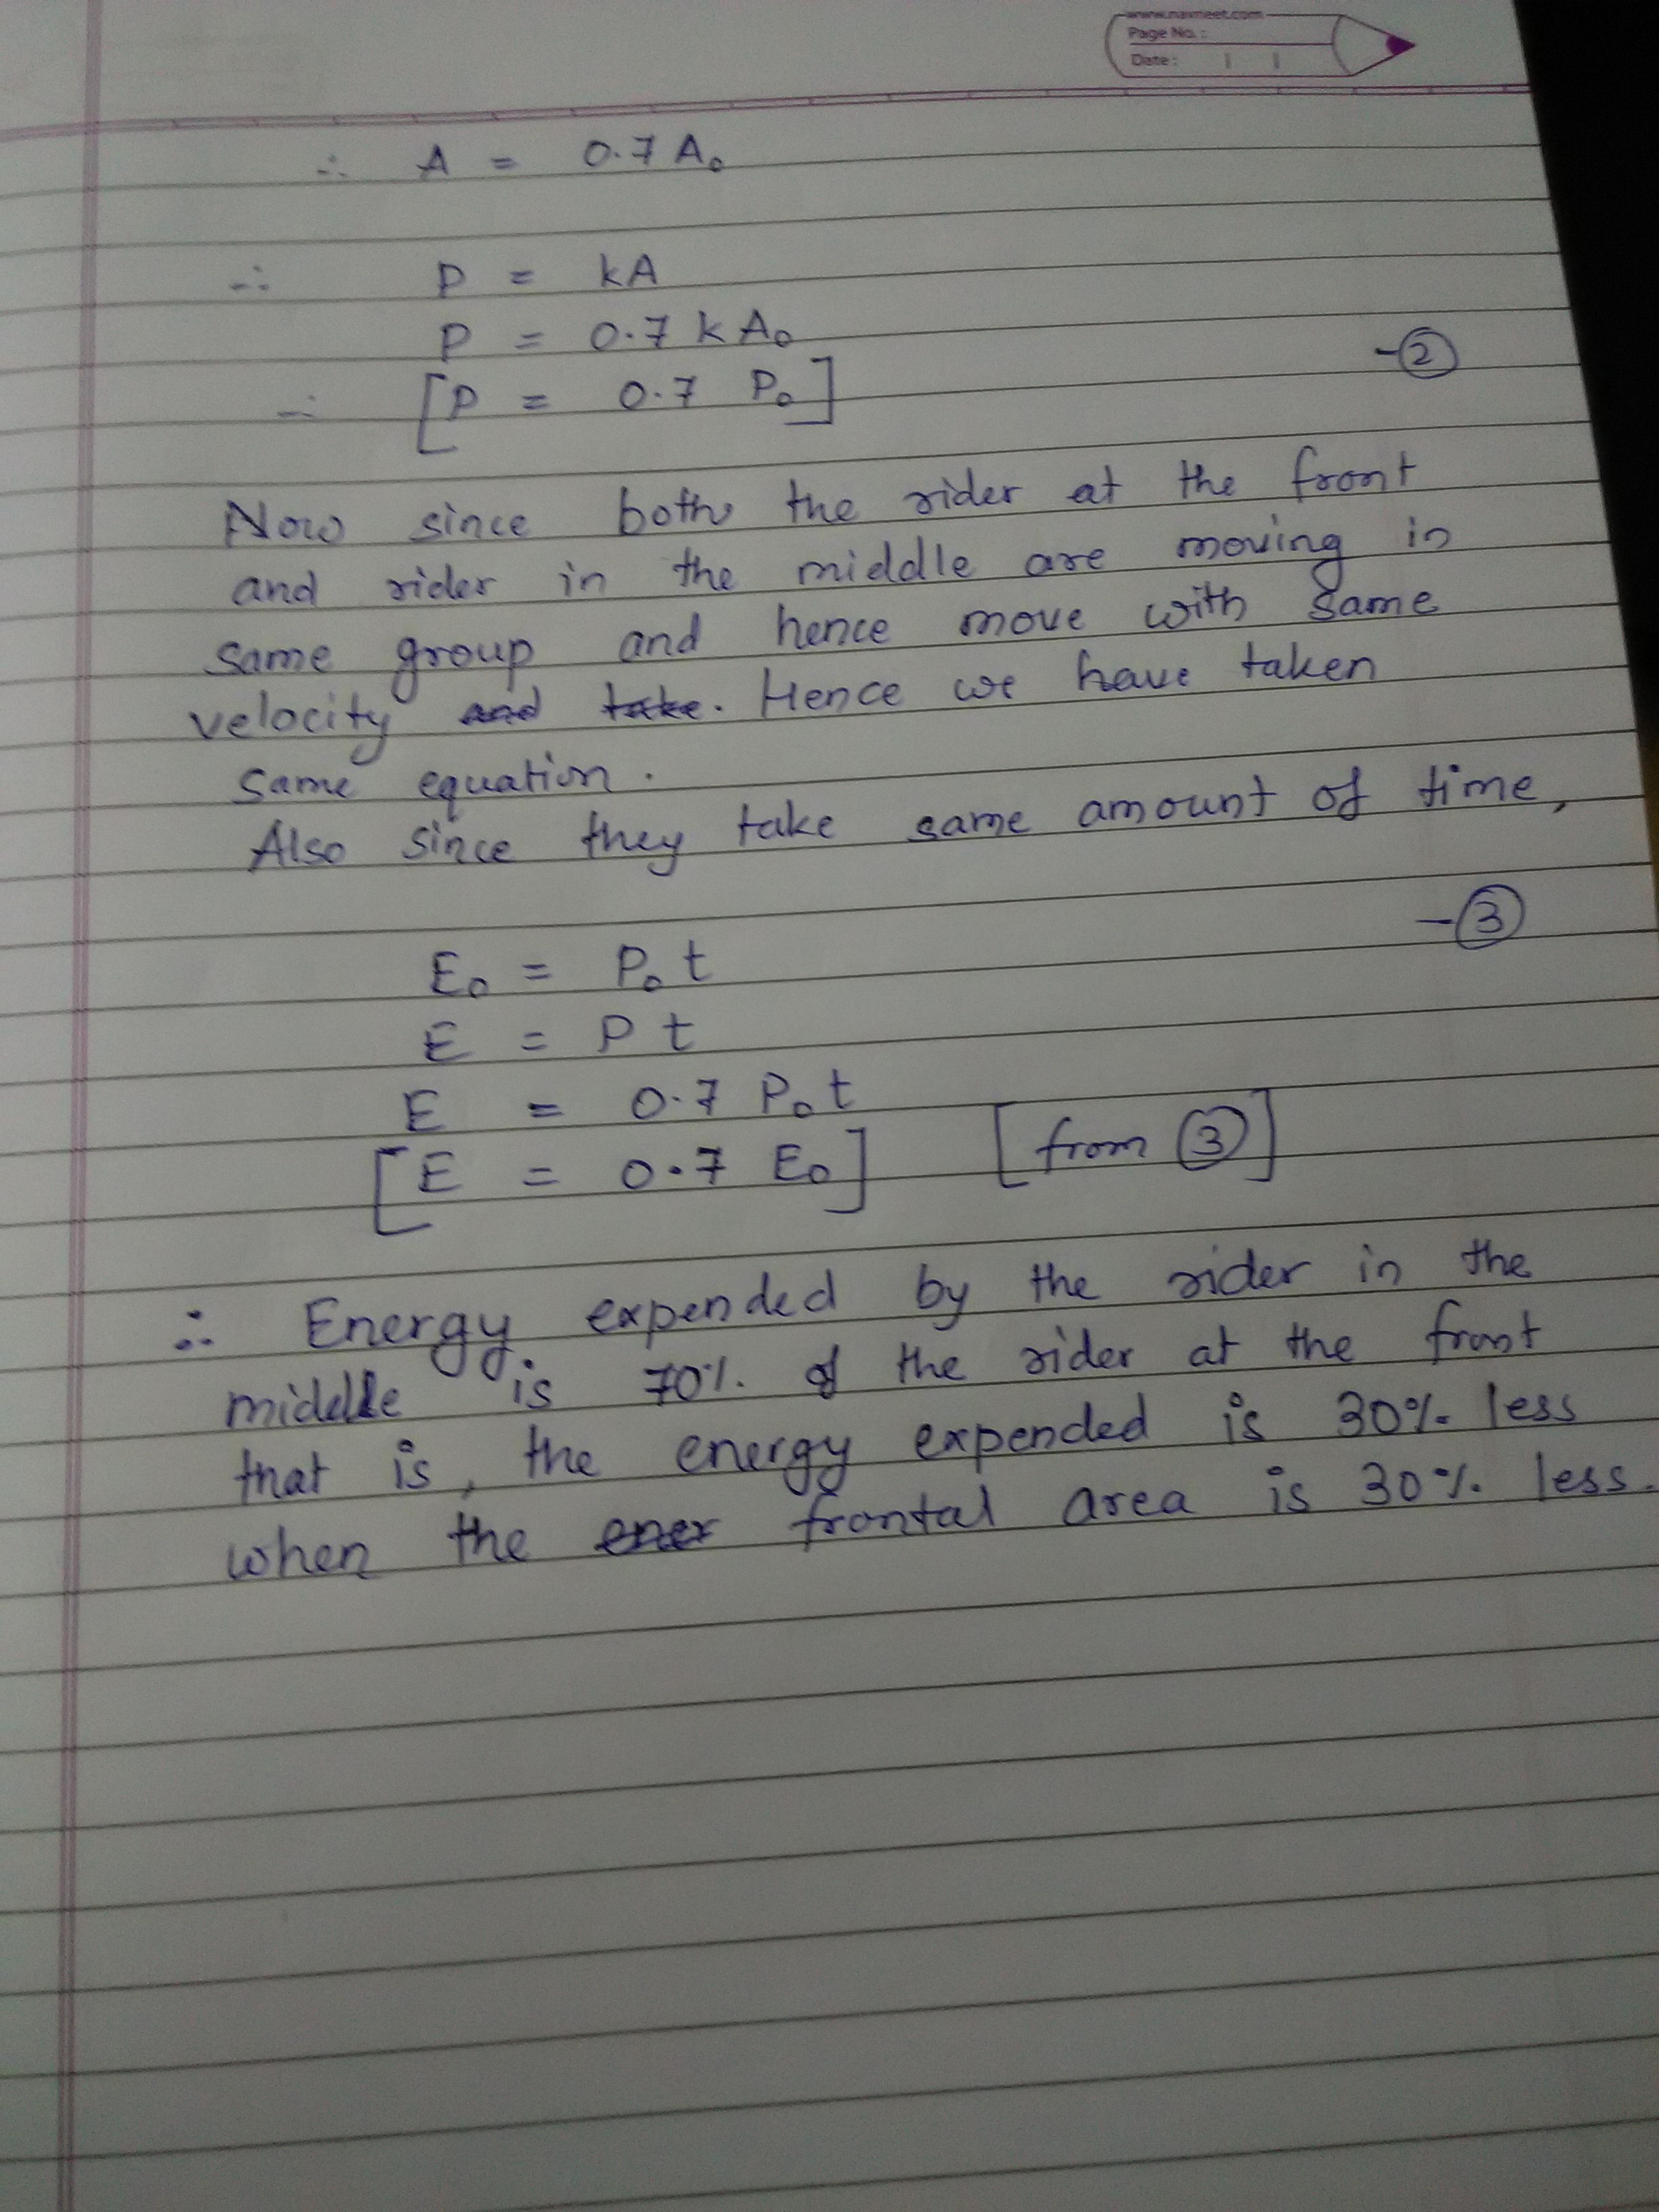 www.navneet.com
Page No. :
Date :
∴ A = 0.7 A₀
∴ P = kA
P = 0.7 k A₀
-②
∴ [P = 0.7 P₀]
Now since both the rider at the front
and rider in the middle are moving in
same group and hence move with same
velocity and take. Hence we have taken
same equation.
Also since they take same amount of time,
-③
E₀ = P₀ t
E = P t
E = 0.7 P₀ t
[E = 0.7 E₀] [from ③]
∴ Energy expended by the rider in the
middle is 70% of the rider at the front
that is, the energy expended is 30% less
when the ener frontal area is 30% less.